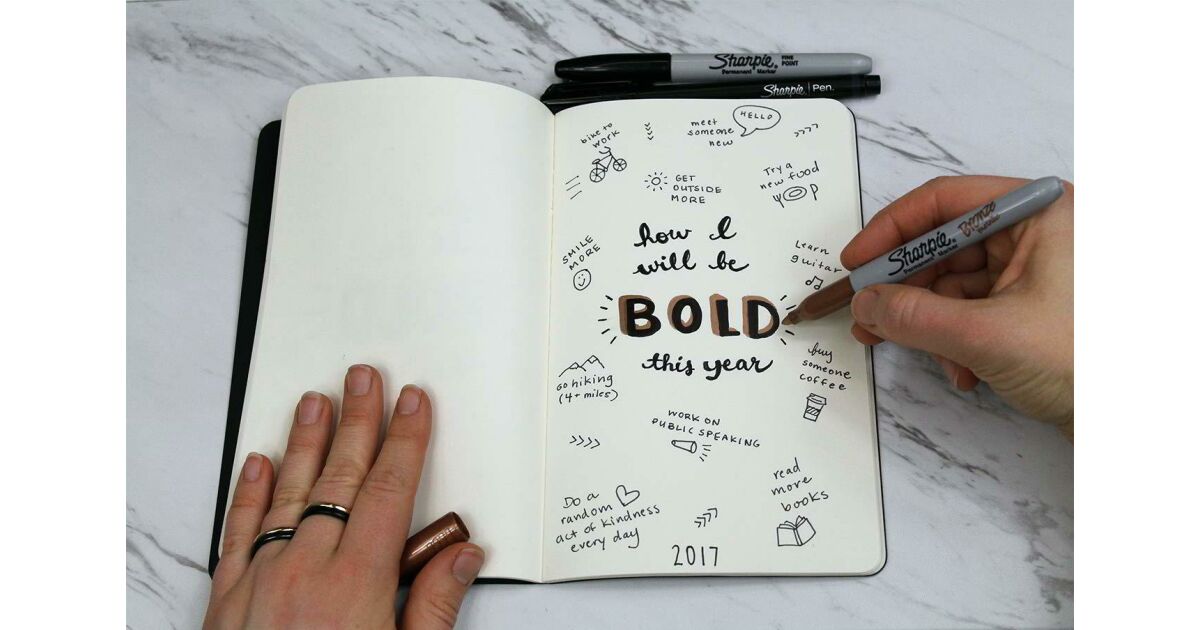 Sharpie® FINE POINT
Permanent Marker
Sharpie® Pen.
bike to
work
meet
someone
new
HELLO
GET
OUTSIDE
MORE
Try a
new food
SMILE
MORE
how I
will be
BOLD
this year
Learn
guitar
Sharpie® Bronze
Permanent Marker
buy
someone
coffee
GO hiking
(4+ miles)
WORK ON
PUBLIC SPEAKING
Do a
random
act of kindness
every day
read
more
books
2017